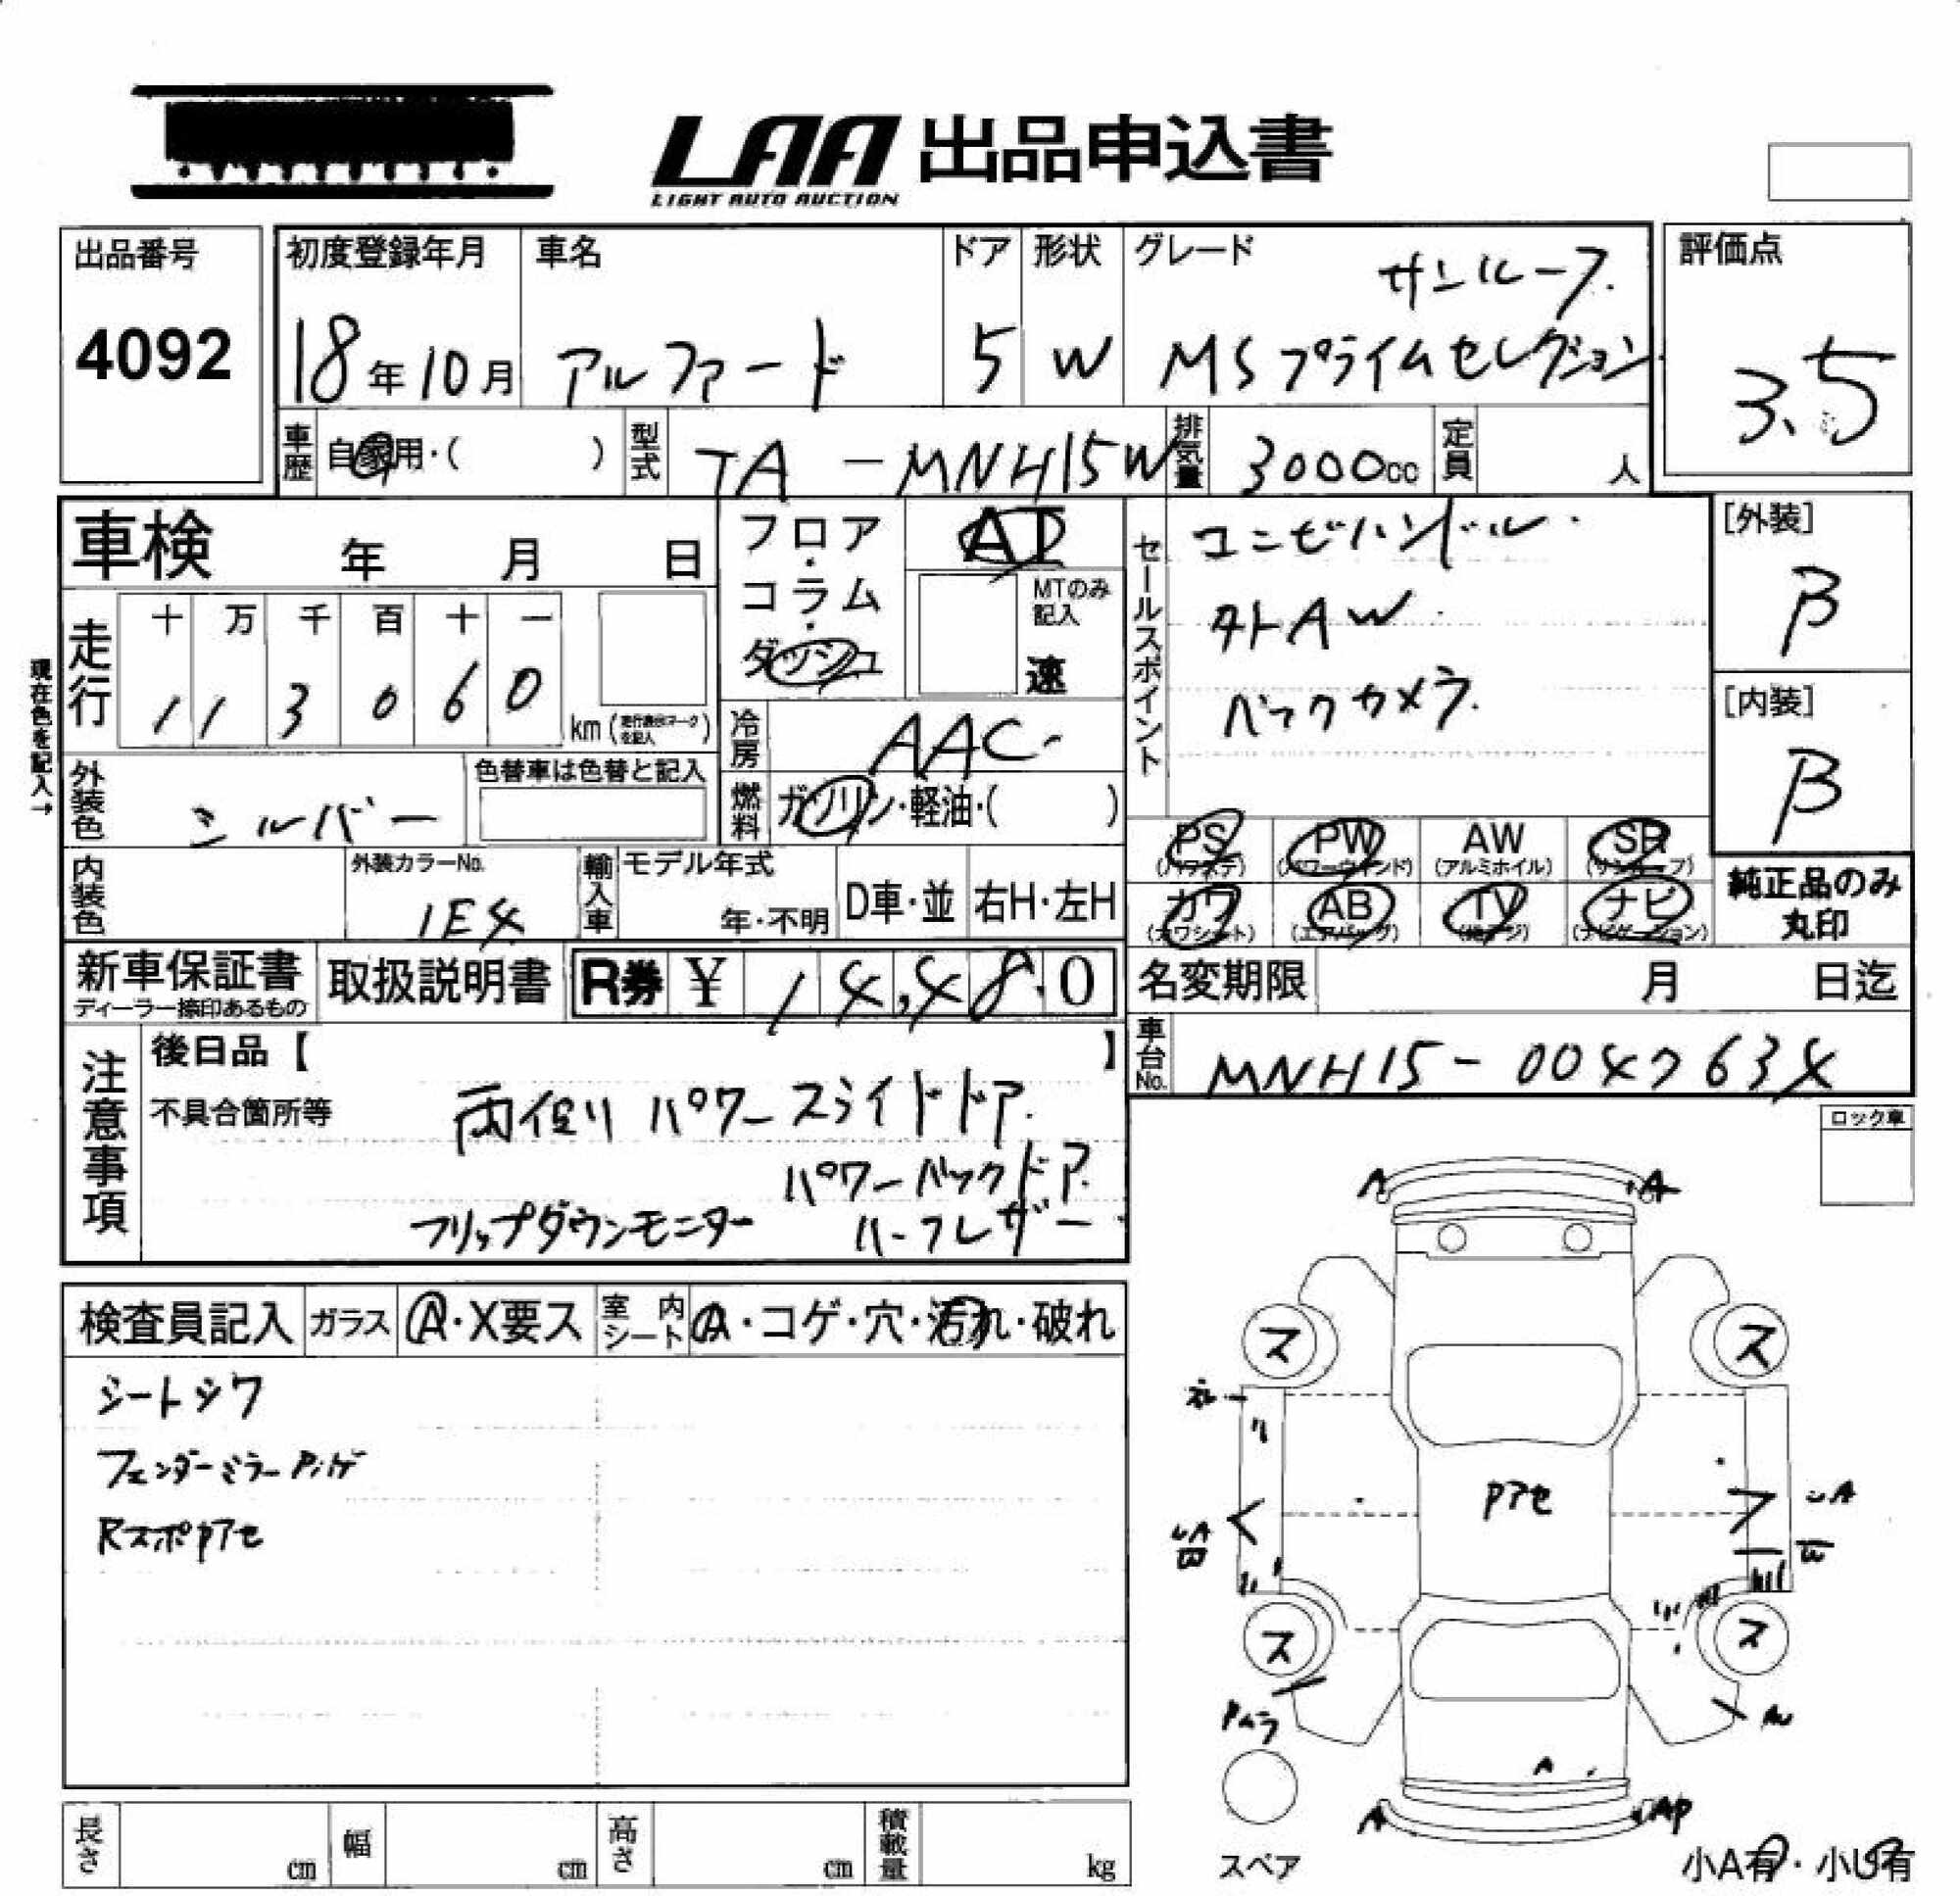 LAA 出品申込書
LIGHT AUTO AUCTION
出品番号
4092
初度登録年月
18年10月
車名
アルファード
ドア
5
形状
W
グレード
サンルーフ.
MSプライムセレクション
評価点
3.5
車歴 自家用・( )
型式 TA-MNH15W
排気量 3000cc
定員 人
車検 年 月 日
フロア・コラム・ダッシュ
AT
MTのみ記入
速
セールスポイント
コンビハンドル.
外AW.
バックカメラ.
[外装]
β
[内装]
β
現在色を記入→
走行
十 万 千 百 十 一
1 1 3 0 6 0
km
冷房 AAC
燃料 ガソリン・軽油・( )
外装色 シルバー
色替車は色替と記入
内装色
外装カラーNo.
1E4
輸入車
モデル年式
年・不明
D車・並
右H・左H
PS (パワステ)
PW (パワーウィンド)
AW (アルミホイル)
SR (サンルーフ)
カワ (カワシート)
AB (エアバッグ)
TV
ナビ (ナビゲーション)
純正品のみ
丸印
新車保証書
ディーラー捺印あるもの
取扱説明書
R券 ¥ 14,480
名変期限 月 日迄
車台No. MNH15-0047634
注意事項
後日品【 】
不具合箇所等
両側パワースライドドア.
パワーバックドア.
フリップダウンモニター ハーフレザー
ロック車
検査員記入
ガラス A・X要ス
室内シート A・コゲ・穴・汚れ・破れ
シートシワ
フェンダーミラーPハゲ
RスポPアセ
A
A
ス
ス
Pアセ
A
B
ス
ス
Pムラ
A
A
AP
スペア
小A有・小U有
長さ cm
幅 cm
高さ cm
積載量 kg